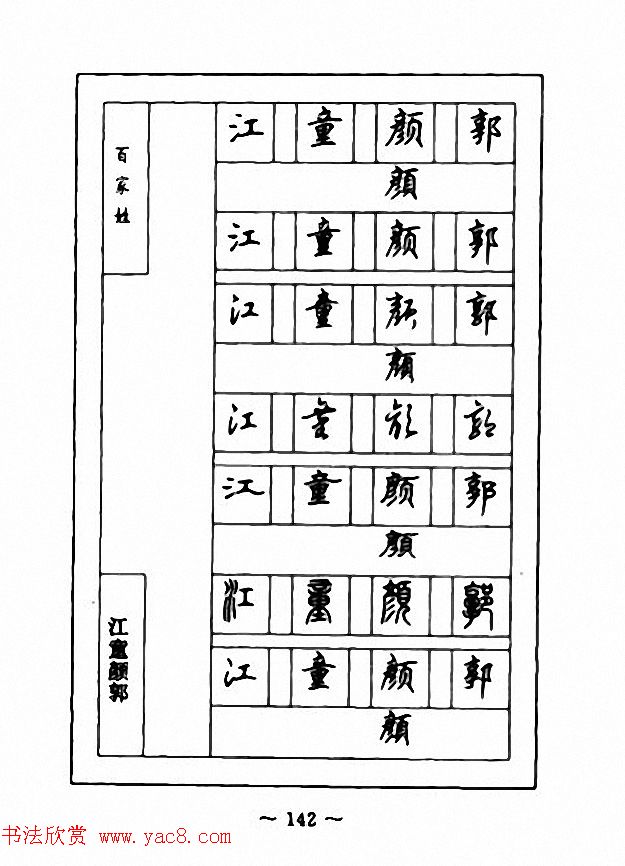 百家姓
江童颜郭
江 童 颜 郭
顔
江 童 颜 郭
江 童 颜 郭
顔
江 童 颜 郭
江 童 颜 郭
顔
江 童 顔 郭
江 童 颜 郭
顔
~ 142 ~
书法欣赏 www.yac8.com